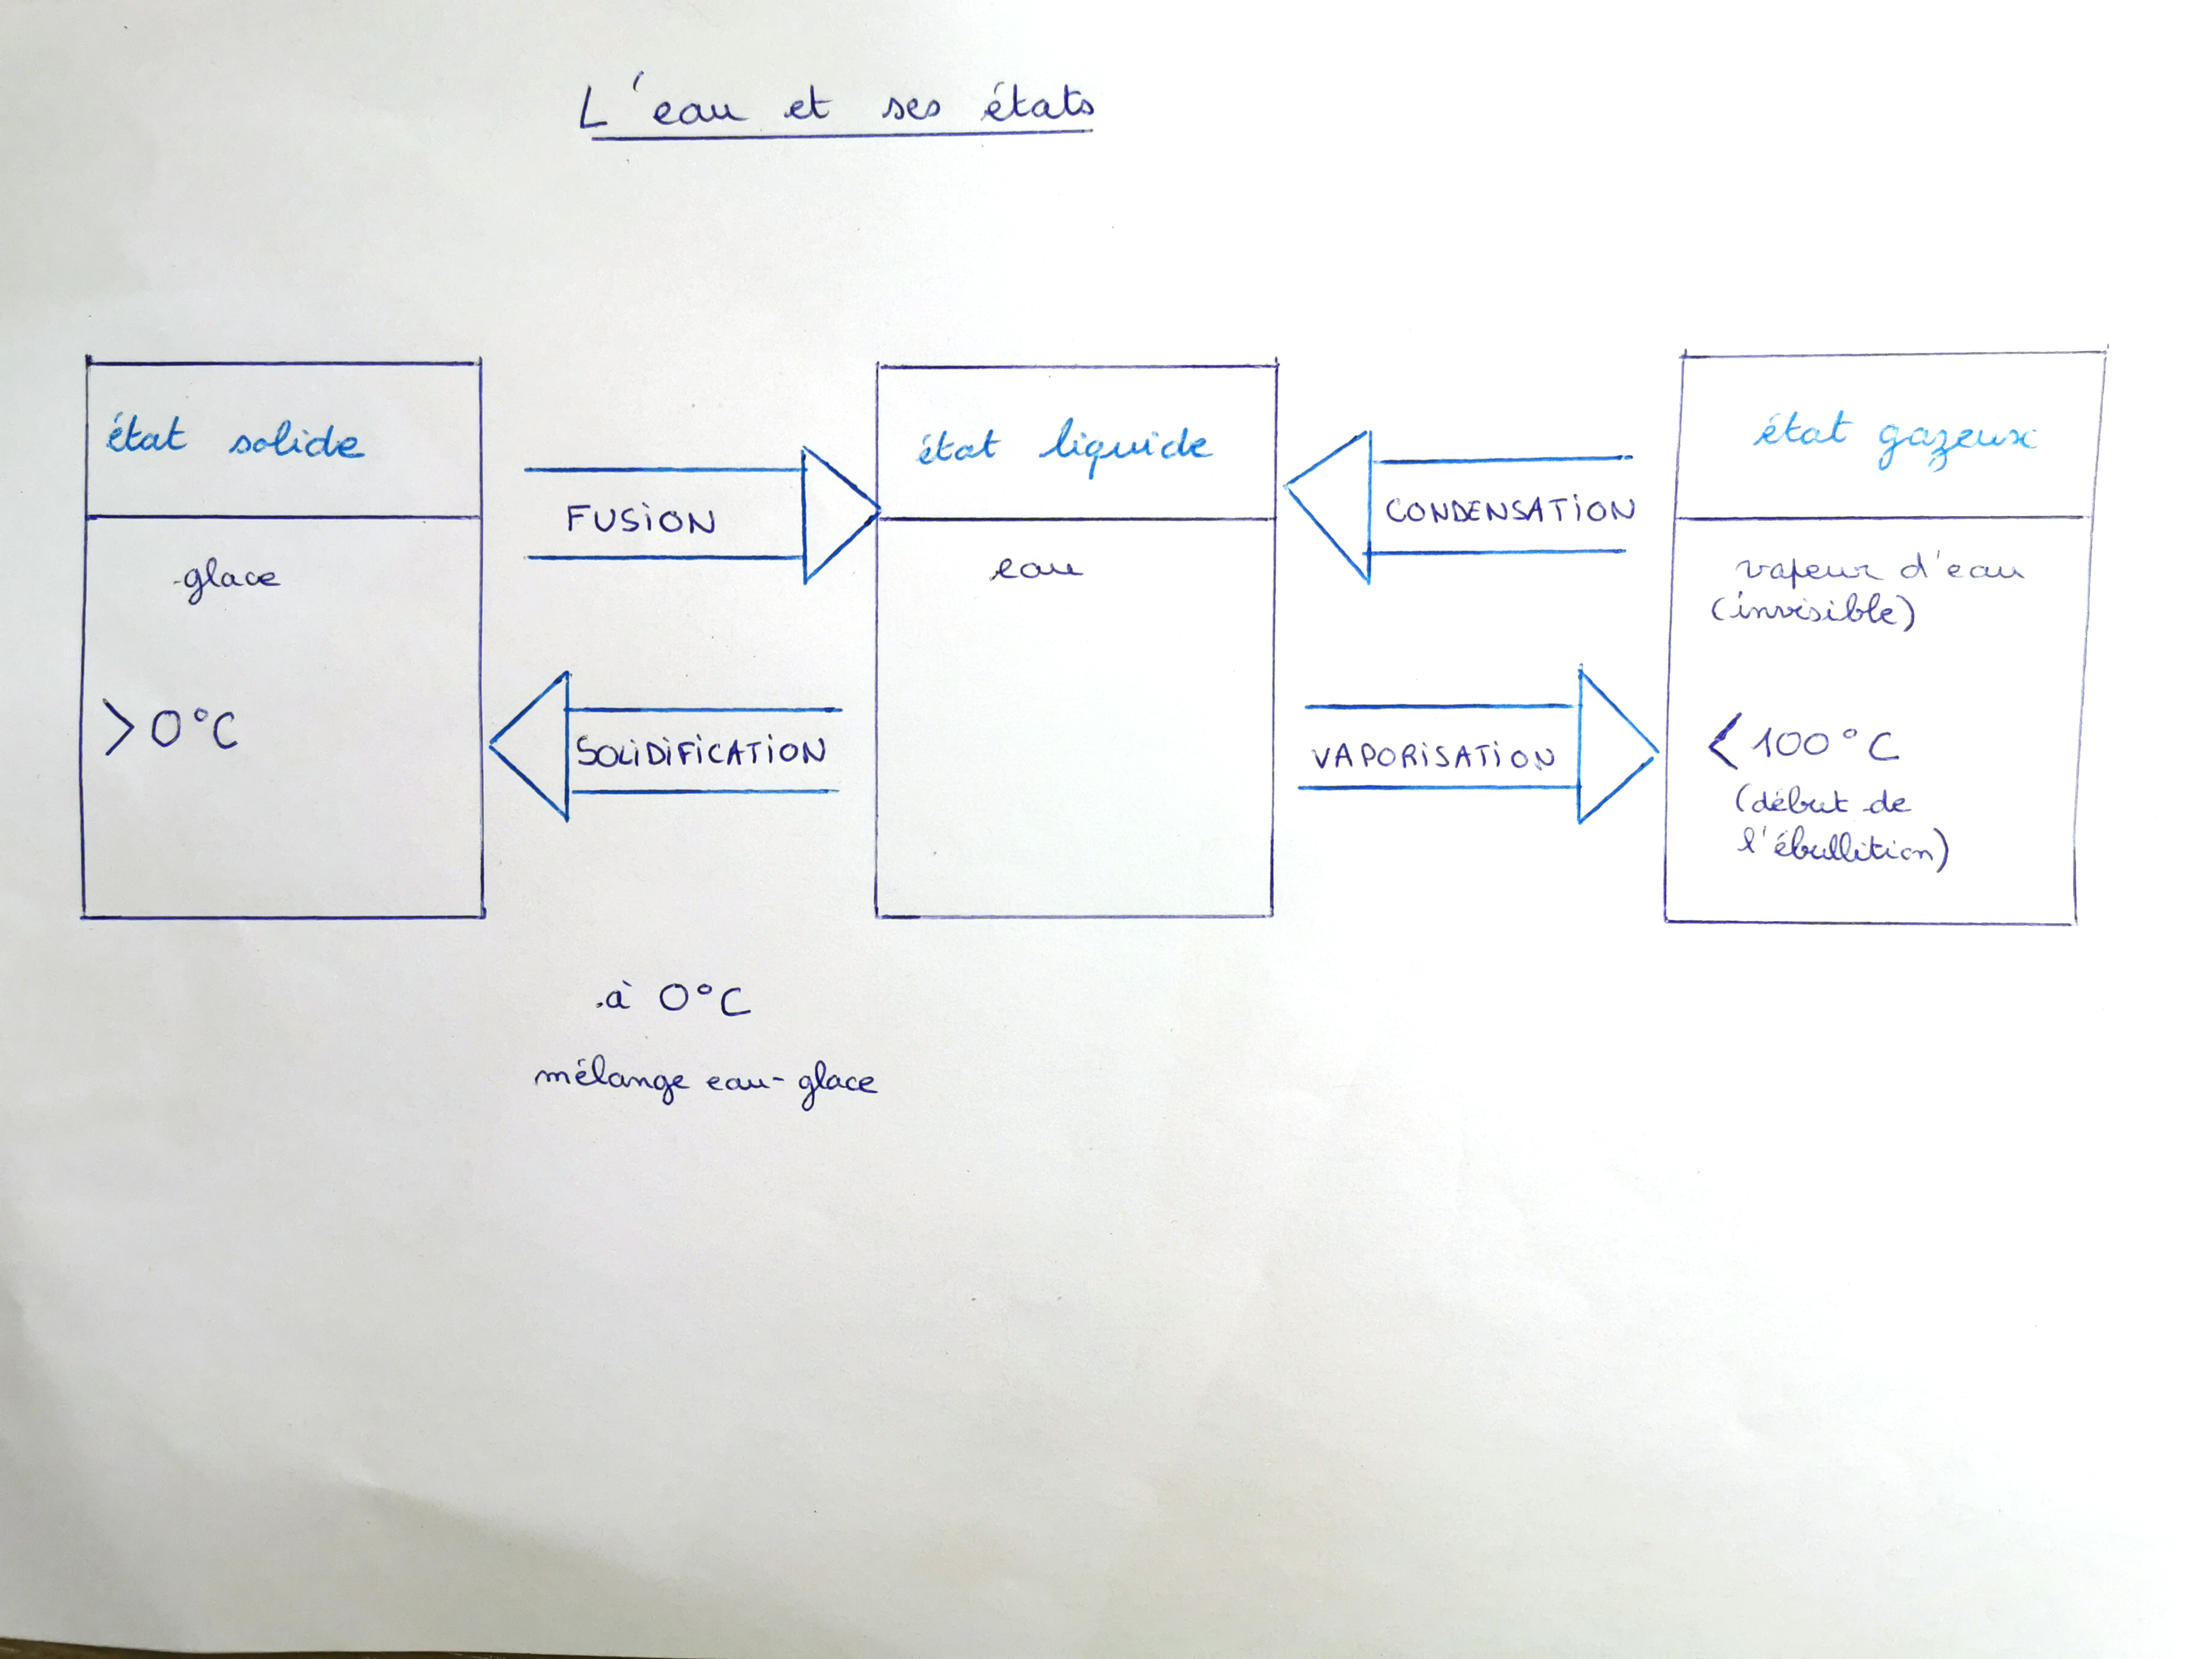 L'eau et ses états
état solide
glace
>0°C
FUSION
SOLIDIFICATION
état liquide
eau
CONDENSATION
VAPORISATION
état gazeux
vapeur d'eau
(invisible)
<100°C
(début de
l'ébullition)
à 0°C
mélange eau-glace